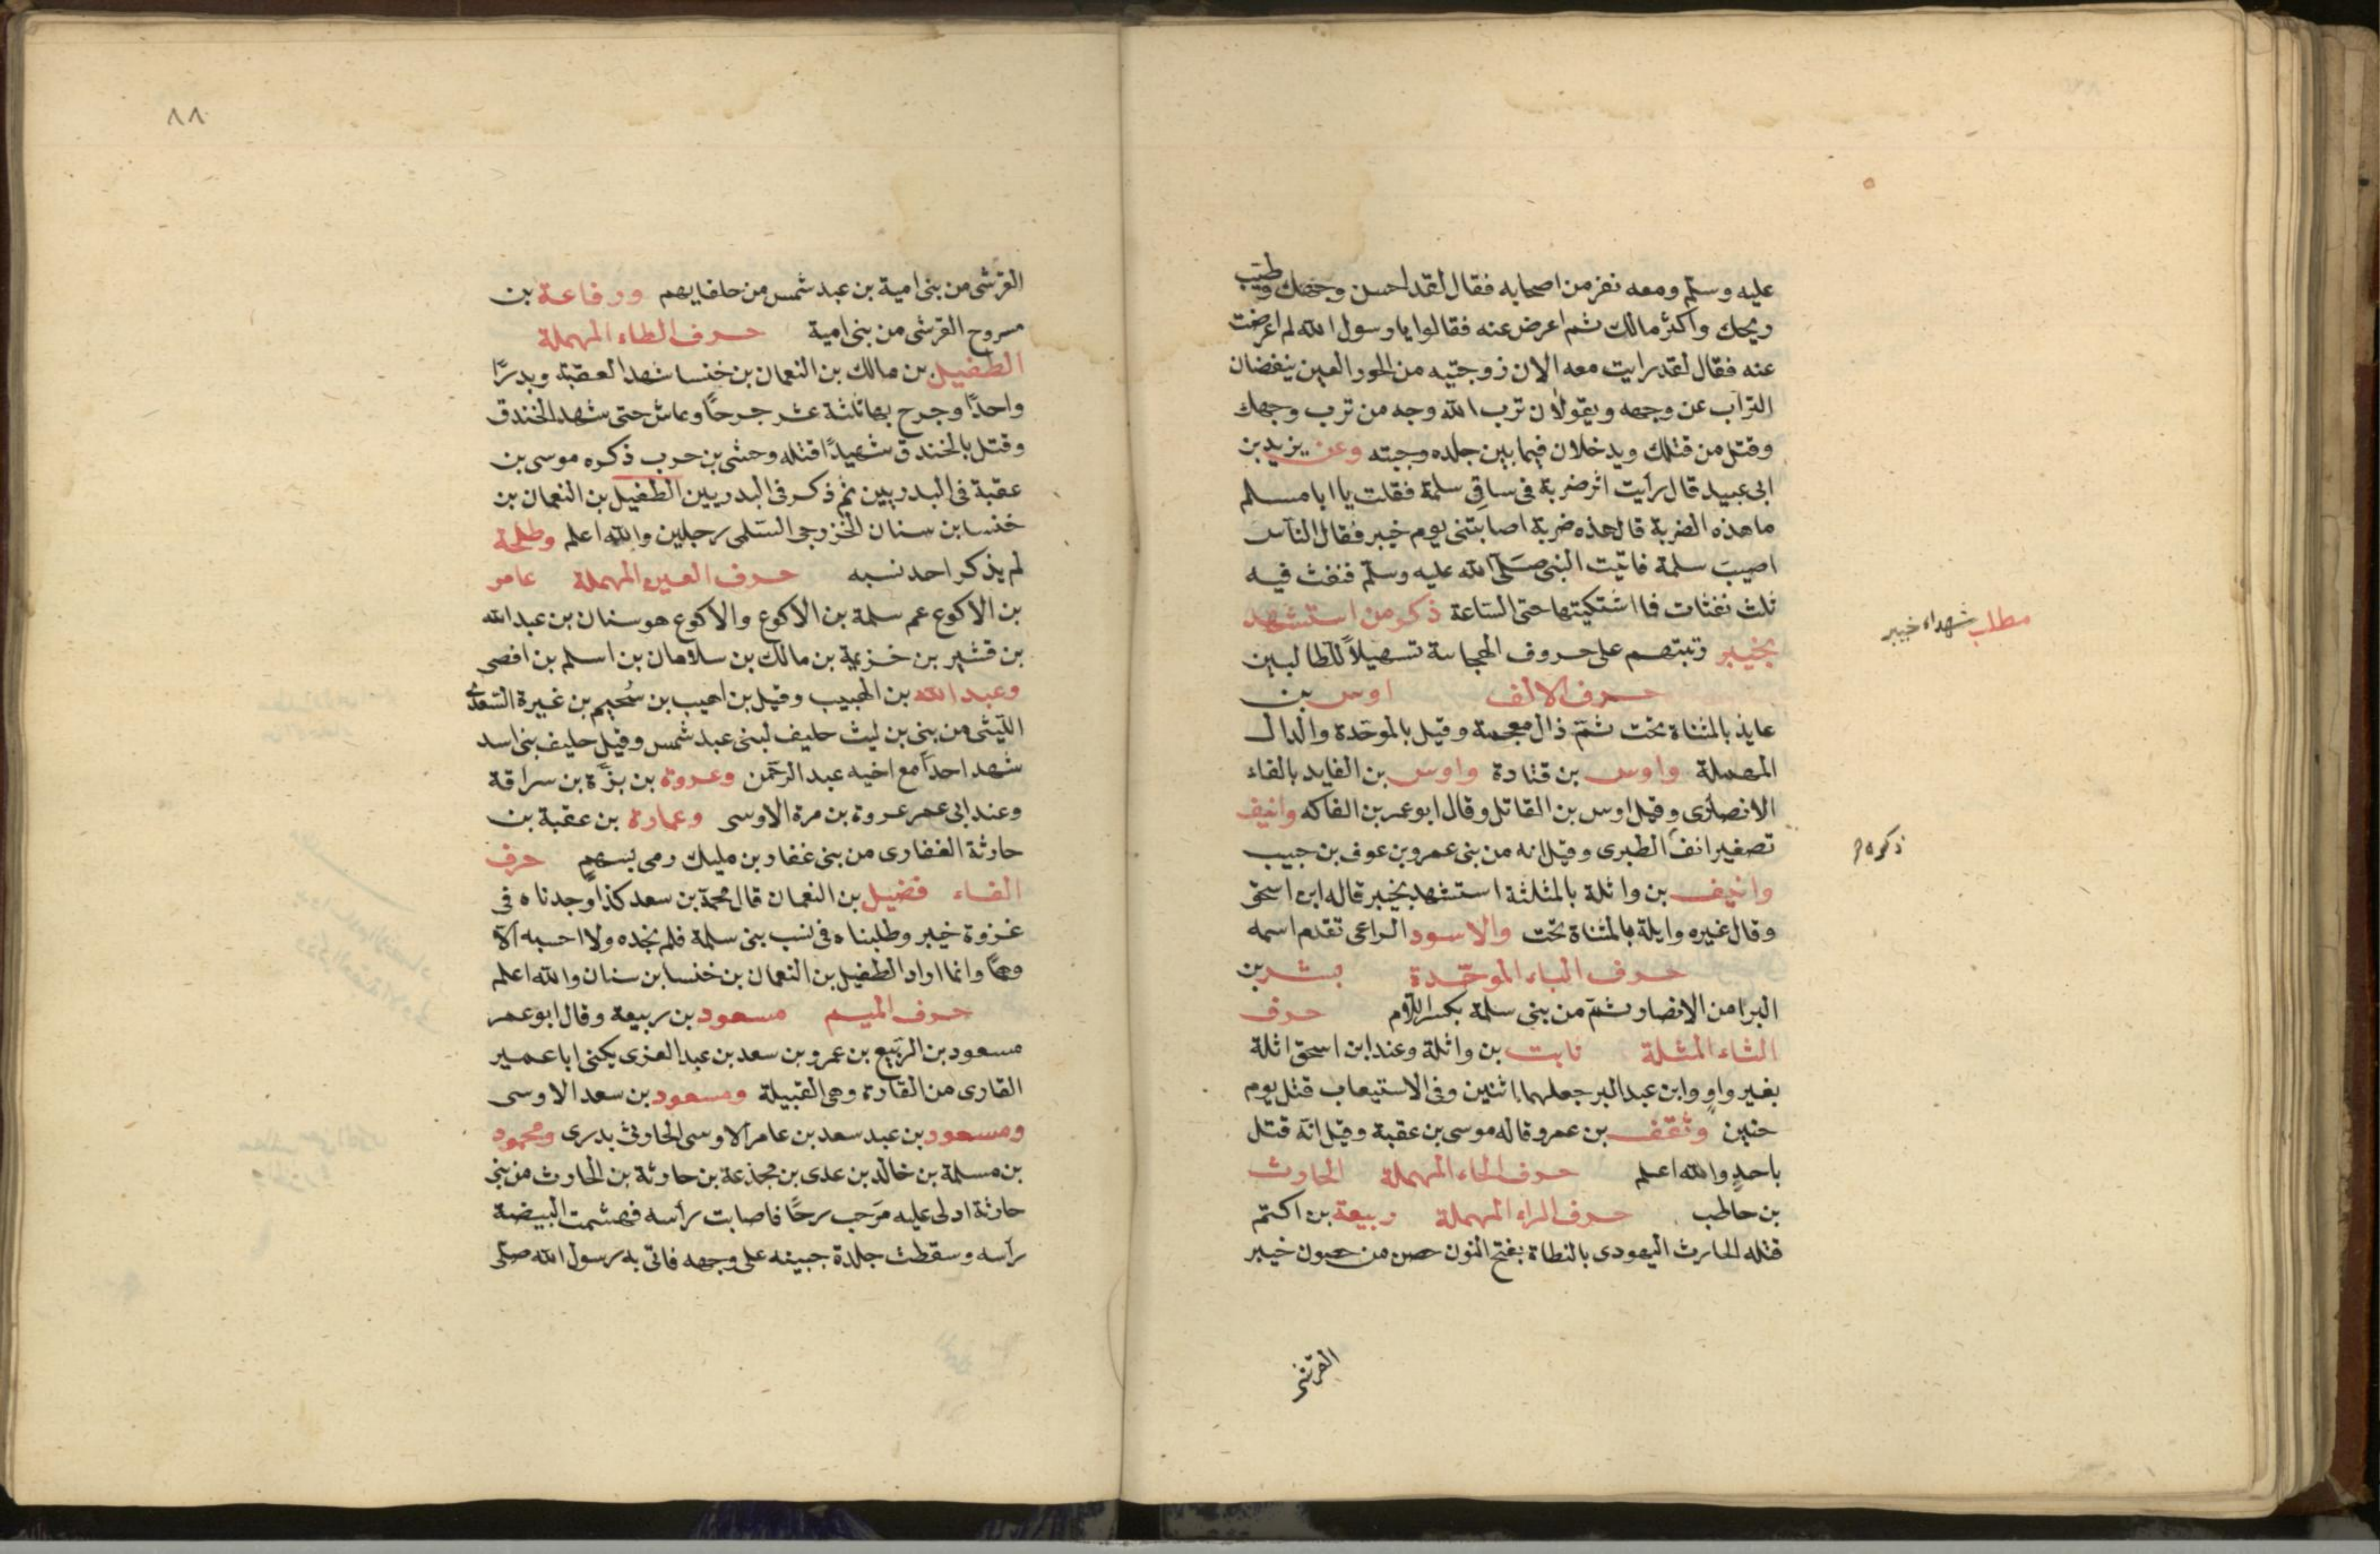 عليه وسلم ومعه نفر من اصحابه فقال لقد احسن وجهك وطيب
ريحك واكثر مالك ثم اعرض عنه فقالوا يا رسول الله لم اعرضت
عنه فقال لقد رايت معه الان زوجتيه من الحور العين ينفضان
التراب عن وجهه ويقولان ترب الله وجه من ترب وجهك
وقتل من قتلك ويدخلان فيما بين جلده وجبته وعن يزيد بن
ابى عبيد قال رأيت اثر ضربة فى ساق سلمة فقلت يا ابا مسلم
ما هذه الضربة قال هذه ضربة اصابتنى يوم خيبر فقال الناس
اصيب سلمة فاتيت النبى صلى الله عليه وسلم فنفث فيه
ثلث نفثات فما اشتكيتها حتى الساعة ذكر من استشهد
بخيبر رتبتهم على حروف الهجاسة تسهيلاً للطالبين
مطلب شهداء خيبر
حرف الالف اوس بن
عايذ بالمثناة تحت ثم ذال معجمة وقيل بالموحدة والدال
المهملة واوس بن قتادة واوس بن الفايد بالفاء
الانصارى وقيل اوس بن القاتل وقال ابو عمر بن الفاكه وانيف
تصغير انف الطبرى وقيل انه من بنى عمرو بن عوف بن حبيب
ذكره
وانيف بن واثلة بالمثلثة استشهد بخيبر قاله ابن اسحق
وقال غيره وايلة بالمثناة تحت والاسود الراعى تقدم اسمه
حرف الباء الموحّدة بشر بن
البرا من الانصار ثم من بنى سلمة بكسر اللام حرف
الثاء المثلة ثابت بن واثلة وعند ابن اسحق اثلة
بغير واو وابن عبد البر جعلهما اثنين وفى الاستيعاب قتل يوم
حنين وثقف بن عمرو قاله موسى بن عقبة وقيل انه قتل
باحد والله اعلم حرف الحاء المهملة الحارث
بن حاطب حرف الراء المهملة ربيعة بن اكتم
قتله الحارث اليهودى بالنطاة بفتح النون حصن من حصون خيبر
القرشى
٨٨
القرشى من بنى امية بن عبد شمس من حلفايهم ورفاعة بن
مسروح القرشى من بنى امية حرف الطاء المهملة
الطفيل بن مالك بن النعمان بن خنسا شهد العقبة وبدرًا
واحدًا وجرح بها ثلثة عشر جرحًا وعاش حتى شهد الخندق
وقتل بالخندق شهيدًا قتله وحشى بن حرب ذكره موسى بن
عقبة فى البدريين ثم ذكر فى البدريين الطفيل بن النعمان بن
خنسا بن سنان الخزرجى السلمى رجلين والله اعلم وطلحة
لم يذكر احد نسبه حرف العين المهملة عامر
بن الاكوع عم سلمة بن الاكوع والاكوع هو سنان بن عبد الله
بن قشير بن خزيمة بن مالك بن سلامان بن اسلم بن افصى
وعبد الله بن الهبيب وقيل بن اهيب بن سُحيم بن غيرة السعدى
الليثى من بنى بن ليث حليف لبنى عبد شمس وقيل حليف بنى اسد
شهد احدًا مع اخيه عبد الرحمن وعروة بن بزّة بن سراقة
وعند ابى عمر عروة بن مرة الاوسى وعمارة بن عقبة بن
حارثة الغفارى من بنى غفار بن مليك رمى بسهم حرف
الفاء فضيل بن النعمان قال محمد بن سعد كذا وجدناه فى
غزوة خيبر وطلبناه فى نسب بنى سلمة فلم نجده ولا احسبه الا
وهمًا وانما اراد الطفيل بن النعمان بن خنسا بن سنان والله اعلم
حرف الميم مسعود بن ربيعة وقال ابو عمر
مسعود بن الربيع بن عمرو بن سعد بن عبد العزى يكنى ابا عمير
القارى من القارة وهى القبيلة ومسعود بن سعد الاوسى
ومسعود بن عبد سعد بن عامر الاوسى الحارثى بدرى ومحمود
بن مسلمة بن خالد بن عدى بن مجذعة بن حارثة بن الحارث من بنى
حارثة ادلى عليه مرحب رحًا فاصابت رأسه فهشمت البيضة
رأسه وسقطت جلدة جبينه على وجهه فاتى به رسول الله صلى